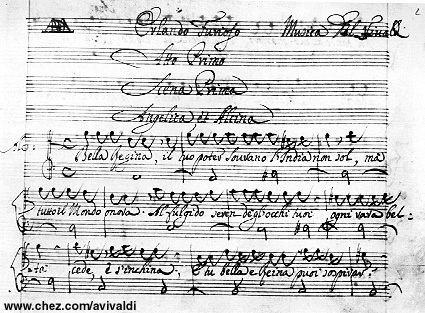 Orlando Furioso Musica Del Vivaldi
Atto Primo
Scena Prima
Angelica et Alcina
Bella Regina, il tuo poter sovrano L'India non sol, ma
tutto il Mondo onora. Al fulgido seren degl'occhi tuoi ogni rara bel:
:tà cede, e s'inchina. E tu bella e Regina puoi sospirar?
www.chez.com/avivaldi